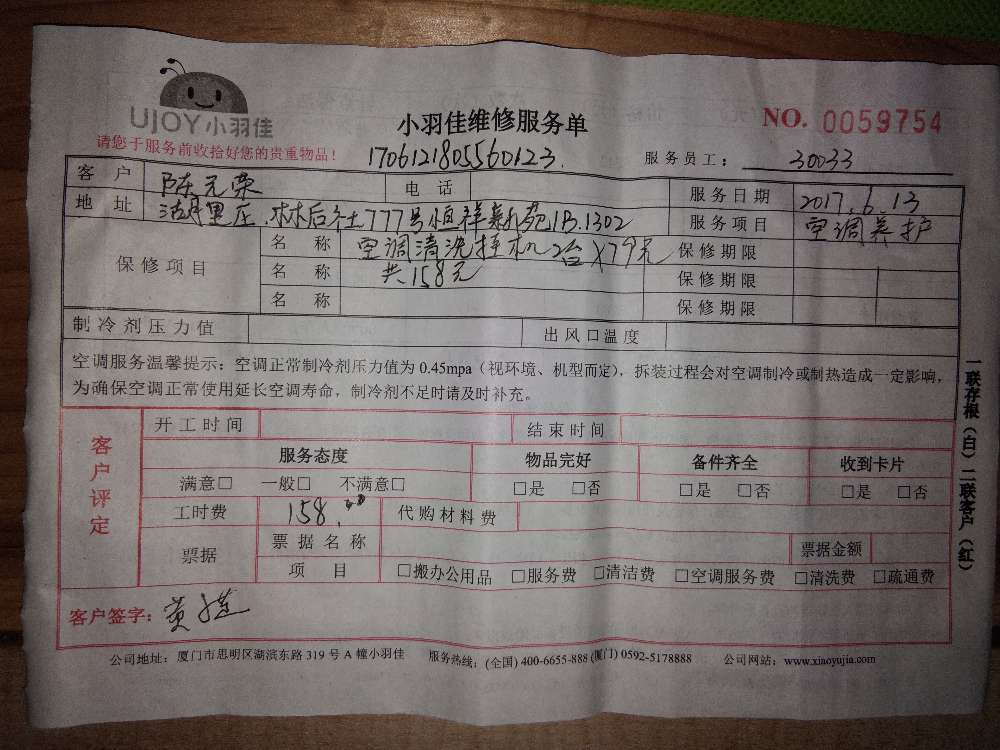 UJOY小羽佳
小羽佳维修服务单
NO. 0059754
请您于服务前收拾好您的贵重物品！
1706121805560123.
服务员工： 30033
客 户 陈元荣 电 话 服务日期 2017.6.13
地 址 里庄.林后社777号恒祥新苑1B.1302 服务项目 空调养护
保修项目 名 称 空调清洗挂机2台X79元 保修期限
名 称 共158元 保修期限
名 称 保修期限
制冷剂压力值 出风口温度
空调服务温馨提示：空调正常制冷剂压力值为 0.45mpa（视环境、机型而定），拆装过程会对空调制冷或制热造成一定影响，
为确保空调正常使用延长空调寿命，制冷剂不足时请及时补充。
客户评定
开工时间 结束时间
服务态度 物品完好 备件齐全 收到卡片
满意□ 一般□ 不满意□ □是 □否 □是 □否 □是 □否
工时费 158.00 代购材料费
票据 票据名称 票据金额
项 目 □搬办公用品 □服务费 □清洁费 □空调服务费 □清洗费 □疏通费
客户签字： 黄
一联存根（白）二联客户（红）
公司地址：厦门市思明区湖滨东路 319 号 A 幢小羽佳 服务热线：(全国) 400-6655-888 (厦门) 0592-5178888 公司网站：www.xiaoyujia.com